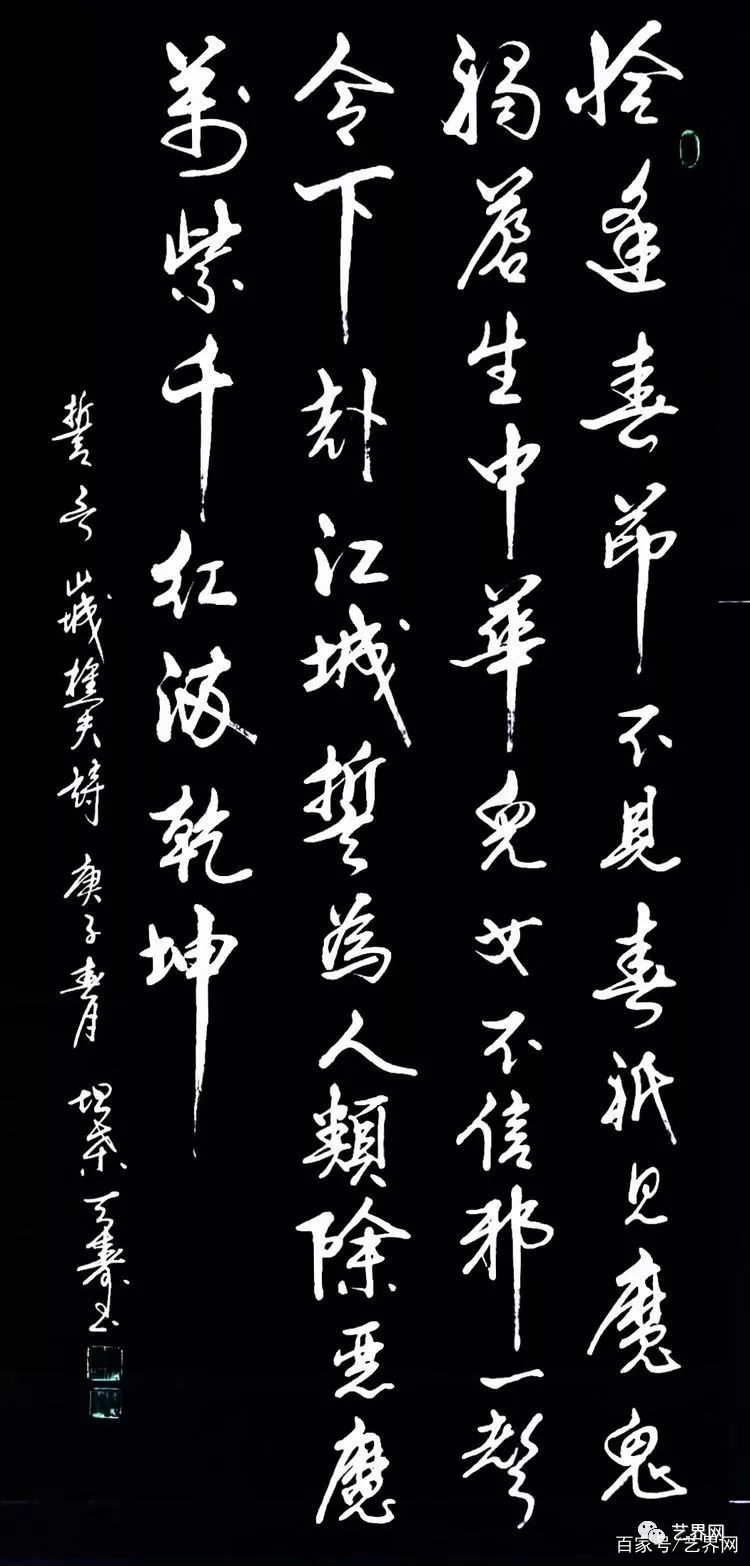 恰逢春節不見春祇見魔鬼
禍蒼生中華兒女不信邪一聲
令下赴江城誓為人類除惡魔
萬紫千紅滿乾坤
誓言 山城樵夫詩 庚子春月 壽书
艺界网
百家号/艺界网